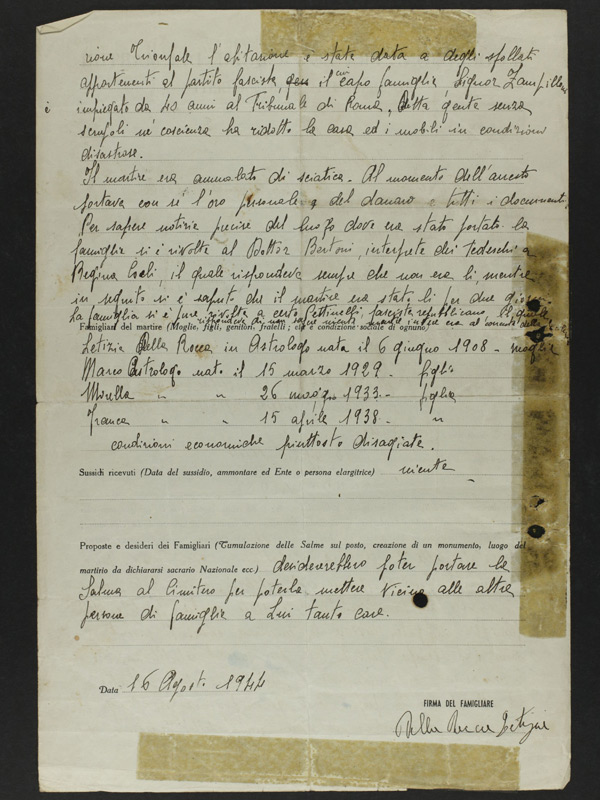 rione Trionfale l'abitazione è stata data a degli sfollati
appartenenti al partito fascista il cui capo famiglia Signor Zampilloni
è impiegato da 40 anni al Tribunale di Roma, detta gente senza
scrupoli nè coscienza ha ridotto la casa ed i mobili in condizioni
disastrose.
Il martire era ammalato di sciatica. Al momento dell'arresto
portava con sé l'oro personale e del danaro e tutti i documenti.
Per sapere notizie precise del luogo dove era stato portato la
famiglia si è rivolta al Dottor Bertoni, interprete dei Tedeschi a
Regina Coeli, il quale rispondeva sempre che non era lì mentre
in seguito si è saputo che il martire era stato lì per due giorni.
La famiglia si è pure rivolta a certo Pettinelli, fascista repubblicano, il quale
rispondeva di non sapere niente mentre invece era al corrente della
Famigliari del martire (Moglie, figli, genitori, fratelli ; età e condizione sociale di ognuno)
Letizia Della Rocca in Astrologo nata il 6 giugno 1908 - moglie
Marco Astrologo nato il 15 marzo 1929. - figlio
Mirella " " 26 maggio 1933 - figlia
Franca " " 15 aprile 1938 - "
condizioni economiche piuttosto disagiate.
Sussidi ricevuti (Data del sussidio, ammontare ed Ente o persona elargitrice) niente
Proposte e desideri dei Famigliari (Tumulazione delle Salme sul posto, creazione di un monumento, luogo del
martirio da dichiararsi sacrario Nazionale ecc.) desidererebbero poter portare la
Salma al Cimitero per poterla mettere vicino alle altre
persone di famiglia a Lui tanto care.
Data 16 Agosto 1944
FIRMA DEL FAMIGLIARE
Della Rocca Letizia